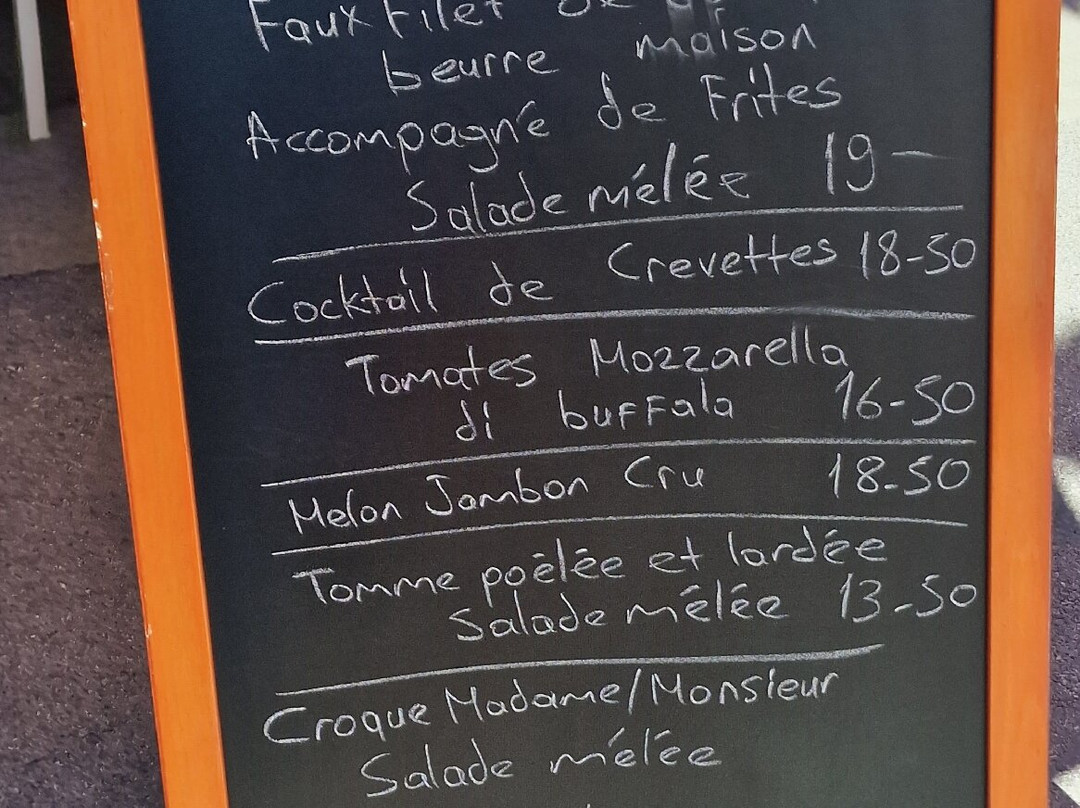 Faux Filet de
beurre maison
Accompagné de Frites
Salade mélée 19-
Cocktail de Crevettes 18-50
Tomates Mozzarella
di buffala 16-50
Melon Jambon Cru 18-50
Tomme poèlée et lardée
Salade mélée 13-50
Croque Madame/Monsieur
Salade mélée